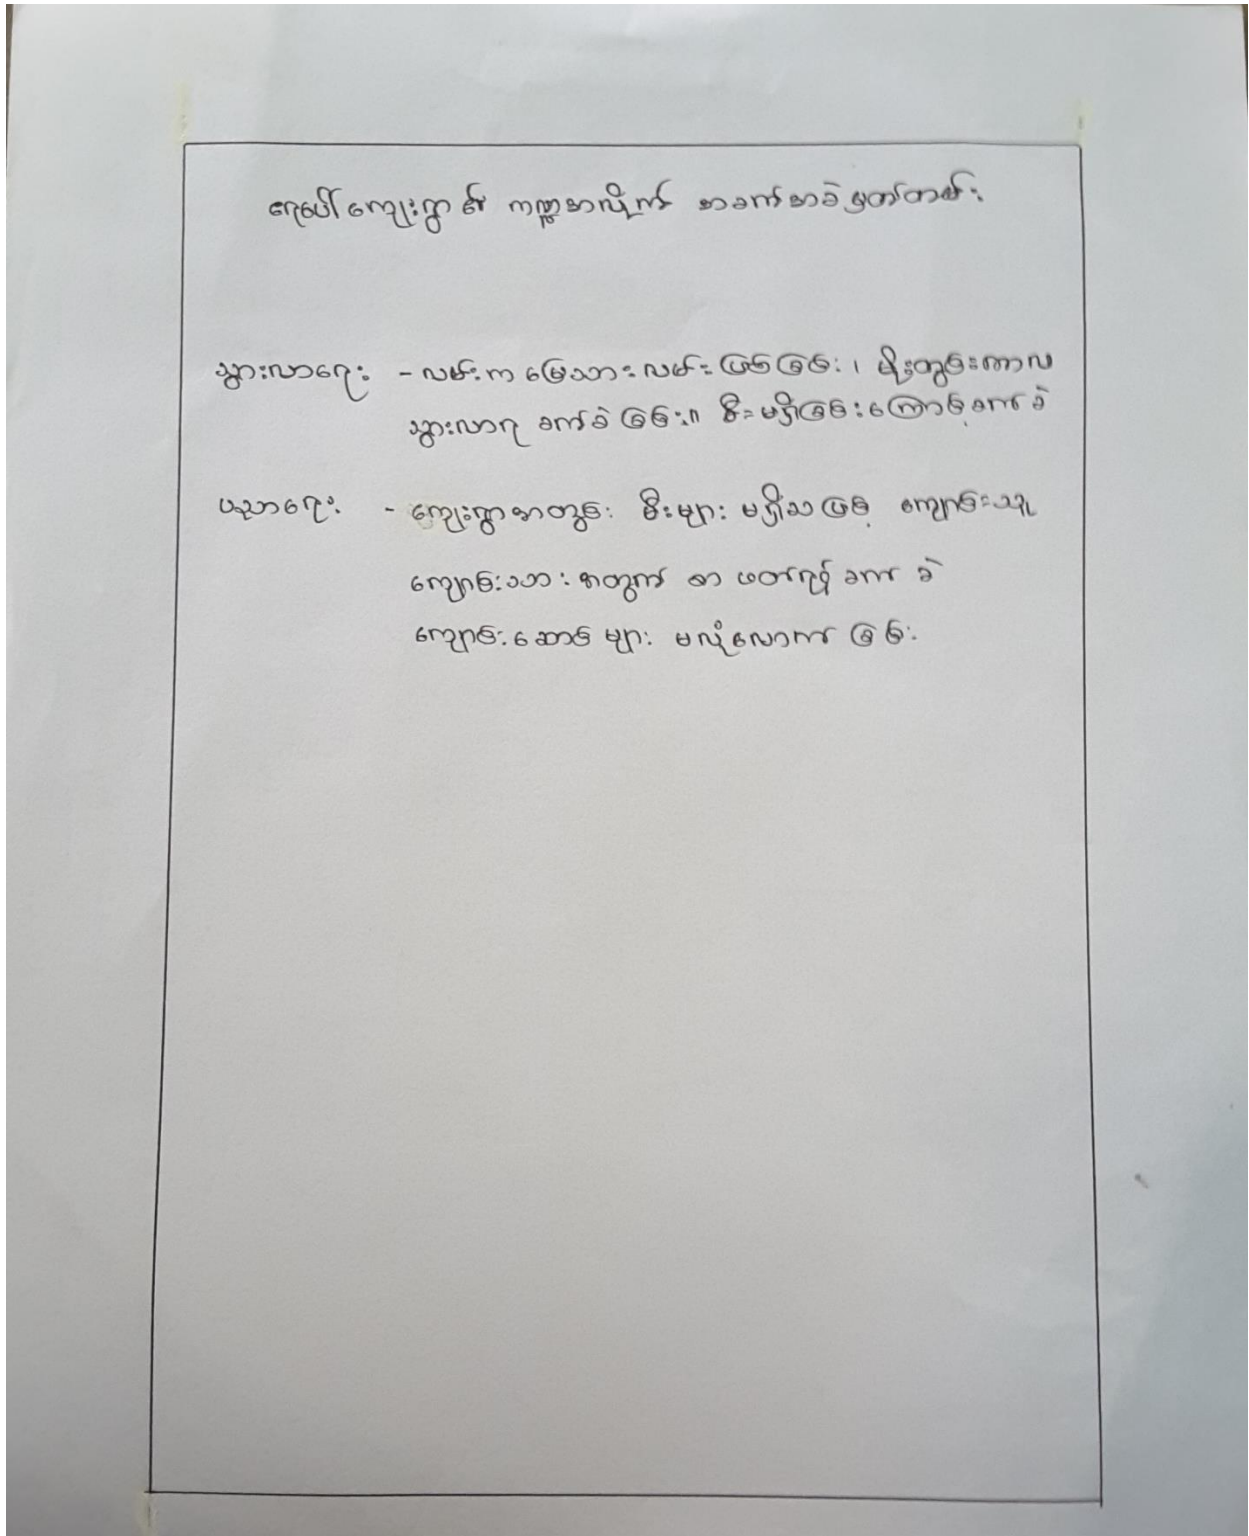 ရေပေါ်ကျေးရွာ၏ ကဏ္ဍအလိုက် အခက်အခဲမှတ်တမ်း
သွားလာရေး - လမ်းက မြေသားလမ်း ဖြစ်ခြင်း၊ မိုးတွင်းကာလ
သွားလာရ ခက်ခဲခြင်း။ မီးမရှိခြင်းကြောင့် ခက်ခဲ
ပညာရေး - ကျေးရွာအတွင်း မီးများ မရှိသဖြင့် ကျောင်းသူ
ကျောင်းသား အတွက် စာဖတ်ရန် ခက်ခဲ
ကျောင်းဆောင်များ မလုံလောက်ခြင်း